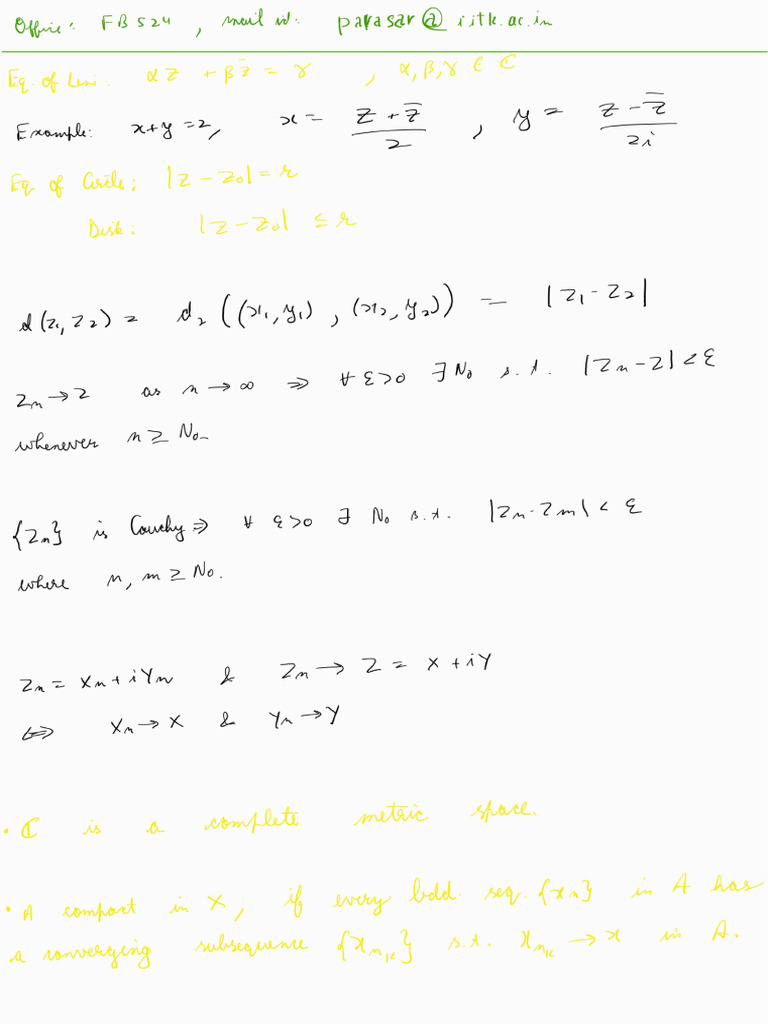 Office: FB 524 , mail id: parasar@iitk.ac.in
Eq. of Line: αz + βz̄ = γ , α, β, γ ∈ ℂ
Example: x+y=2, x = (z + z̄)/2 , y = (z - z̄)/2i
Eq of Circle; |z - z₀| = r
Disk: |z - z₀| ≤ r
d(z₁, z₂) = d₂((x₁, y₁) , (x₂, y₂)) = |z₁ - z₂|
zₙ → z as n → ∞ ⇒ ∀ ε>0 ∃ N₀ s.t. |zₙ - z| < ε
whenever n ≥ N₀.
{zₙ} is Cauchy ⇒ ∀ ε>0 ∃ N₀ s.t. |zₙ - zₘ| < ε
where n, m ≥ N₀.
zₙ = xₙ + iyₙ & zₙ → z = x + iy
⇔ xₙ → x & yₙ → y
• ℂ is a complete metric space.
• A compact in X, if every bdd. seq. {xₙ} in A has
a converging subsequence {xₙₖ} s.t. xₙₖ → x in A.